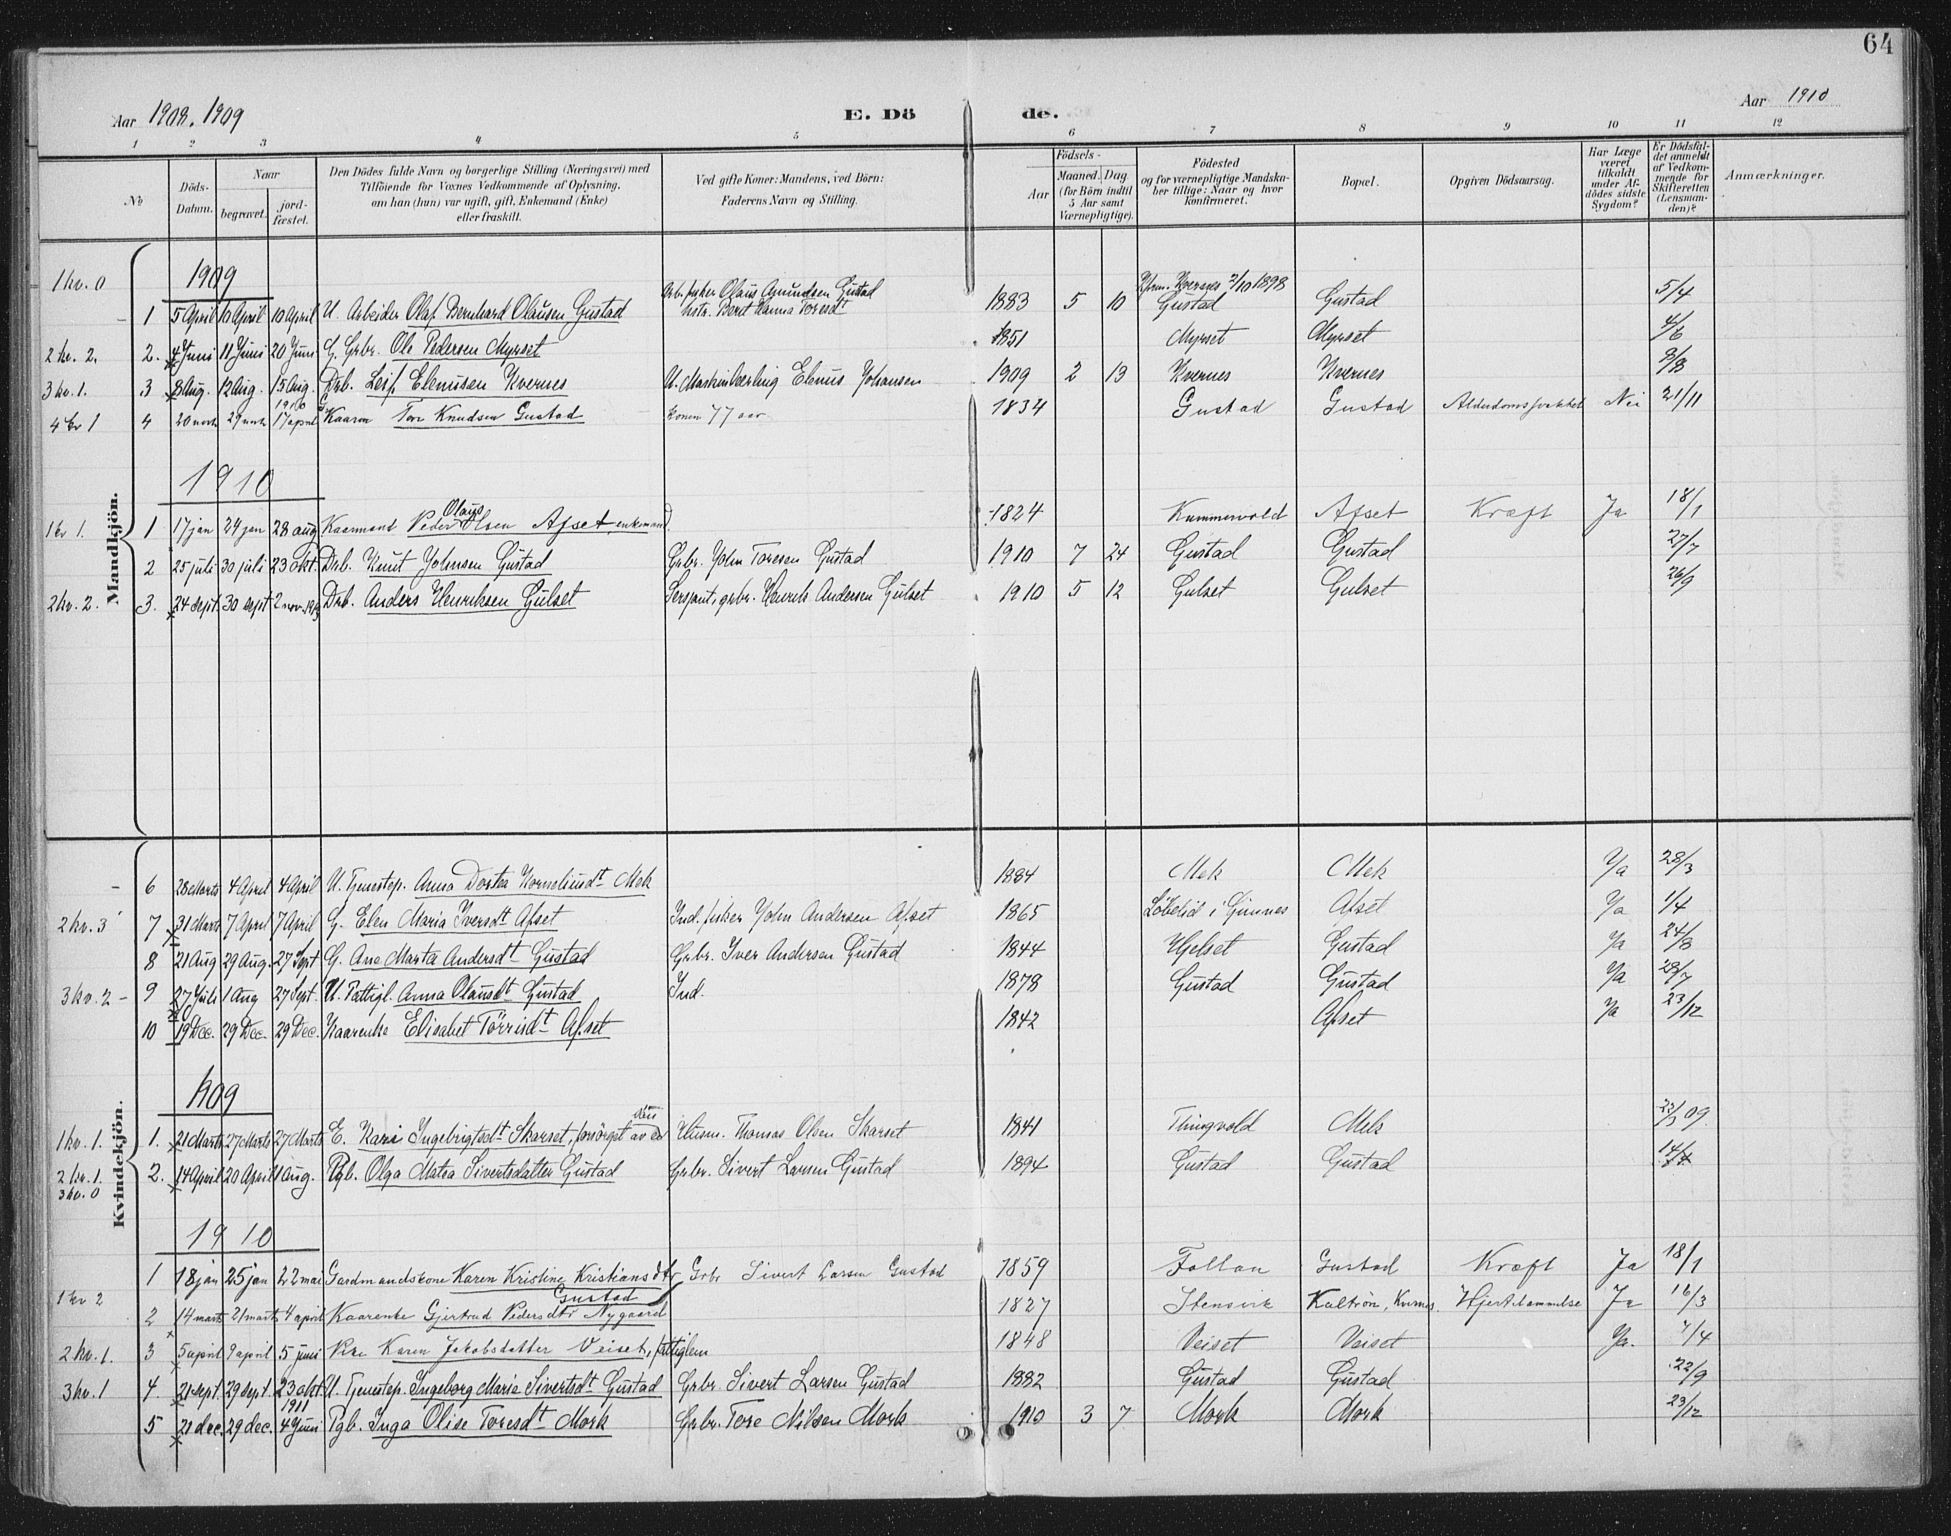 64
Aar 1908. 1909 E. Dö de. Aar 1910
1 2 3 4 5 6 7 8 9 10 11 12
No
Döds-Datum.
Naar
begravet.
jord-fæstet.
Den Dödes fulde Navn og borgerlige Stilling (Næringsvei) med
Tilföiende for Voxnes Vedkommende af Oplysning,
om han (hun) var ugift, gift, Enkemand (Enke)
eller fraskilt.
Ved gifte Koner: Mandens, ved Börn:
Faderens Navn og Stilling.
Födsels-
Aar
Maaned. Dag.
(for Börn indtil
5 Aar samt
Værnepligtige).
Födested
og for værnepligtige Mandska-
ber tillige: Naar og hvor
konfirmeret.
Bopæl.
Opgiven Dödsaarsag.
Har Læge
været
tilkaldt
under Af-
dödes sidste
Sygdom?
Er Dödsfal-
det anmeldt
af Vedkom-
mende for
Skifteretten
(Lensman-
den)?
Anmærkninger.
Mandkjön.
1 kv. 0 1909
1 5 April 10 April 10 April U. Arbeider Olaf Bernhard Olausen Gustad Arb. fisker Olaus Amundsen Gustad Hstr. Berit Hanna Toresdt 1883 5 10 Kfrm. Kvernes 2/10 1898 Gustad Gustad 5/4
2 kv. 2. 2. 4 Juni 11 Juni 20 Juni G. Grbr. Ole Pedersen Myrset 1851 Myrset Myrset 4/6
3 kv. 1. 3 8 Aug. 12 Aug. 15 Aug. Drb. Leif Elenusen Kvernes U. Maskinlærling Elenus Johansen 1909 2 13 Kvernes Kvernes 9/8
4 kv 1 4 20 novb 29 novb 1910 17 april Kaarm Tore Knudsen Gustad Konen 77 aar 1834 Gustad Gustad Alderdomssvakhet Nei 21/11
1910
1 kv 1. 1 17 jan 24 jan 28 aug Kaarmand Peder Olaus Olsen Afset, enkemand 1824 Kummervold Afset Kræft Ja 18/1
2 25 juli 30 juli 23 okt. Drb. Knut Johnsen Gustad Grbr. John Toresen Gustad 1910 7 24 Gustad Gustad 27/7
2 kv. 2. 3. 24 sept 30 sept 2 nov. Drb. Anders Henriksen Gulset Serjant, grbr. Henrik Andersen Gulset 1910 5 12 Gulset Gulset 26/9
Kvindekjön.
6 28 Marts 4 April 4 April U. Tjenestep. Anna Dortea Korneliusdt Mek 1884 Mek Mek Ja 28/3
2 kv. 3 7 31 Marts 7 April 7 April G. Elen Maria Iversdt Afset Ind. fisker John Andersen Afset 1865 Løbelid i Gimnes Afset Ja 1/4
8 21 Aug 29 Aug. 27 Sept G. Ane Marta Andersdt Gustad Grbr. Iver Andersen Gustad 1844 Hjelset Gustad Ja 24/8
3 kv. 2 - 9 27 Juli 1 Aug 27 Sept. U. Fattigl. Anna Olausdt Gustad Ind. 1878 Gustad Gustad Ja 28/7
10 19 Dec. 29 Dec. 29 Dec. Kaarenke Elisabet Törrisdt Afset 1842 Afset Ja 23/12
1909
1 kv. 1. 1. 21 Marts 27 Marts 27 Marts E. Kari Ingebrigtsdt Skarset, forsörget av Husm. Thomas Olsen Skarset 1841 Thingvold Mek 23/3 09.
2 kv. 1. 2. 14 April 20 April 1 Aug. Pgb. Olga Matea Sivertsdatter Gustad Grbr. Sivert Larsen Gustad 1894 Gustad Gustad 14/4
3 kv. 0
1910
1 18 jan 25 jan 22 mai Gardmandskone Karen Kristine Kristiansdtr Gustad Grbr Sivert Larsen Gustad 1859 Follan Gustad Kræft Ja 18/1
1 kv 2 2 14 marts 21 marts 4 april Kaarenke Gjertrud Pedersdtr Nygaard 1827 Stensvik Kaltrøn, Kvrnes Hjertelammelse Ja 16/3
2 kv. 1. 3 5 april 9 april 5 juni Karen Jakobsdatter Veiset, fattiglem 1848 Veiset Veiset Ja. 7/4
3 kv. 1 4. 21 sept 29 sept. 23 okt. U. Tjenestep. Ingeborg Marie Sivertsdt Gustad Grbr Sivert Larsen Gustad 1882 Gustad Gustad 22/9
5 21 dec. 29 dec. 1911 4 Juni Pgb. Inga Olise Toresdt Mork Grbr. Tore Nilsen Mork 1910 3 7 Mork Mork 23/12